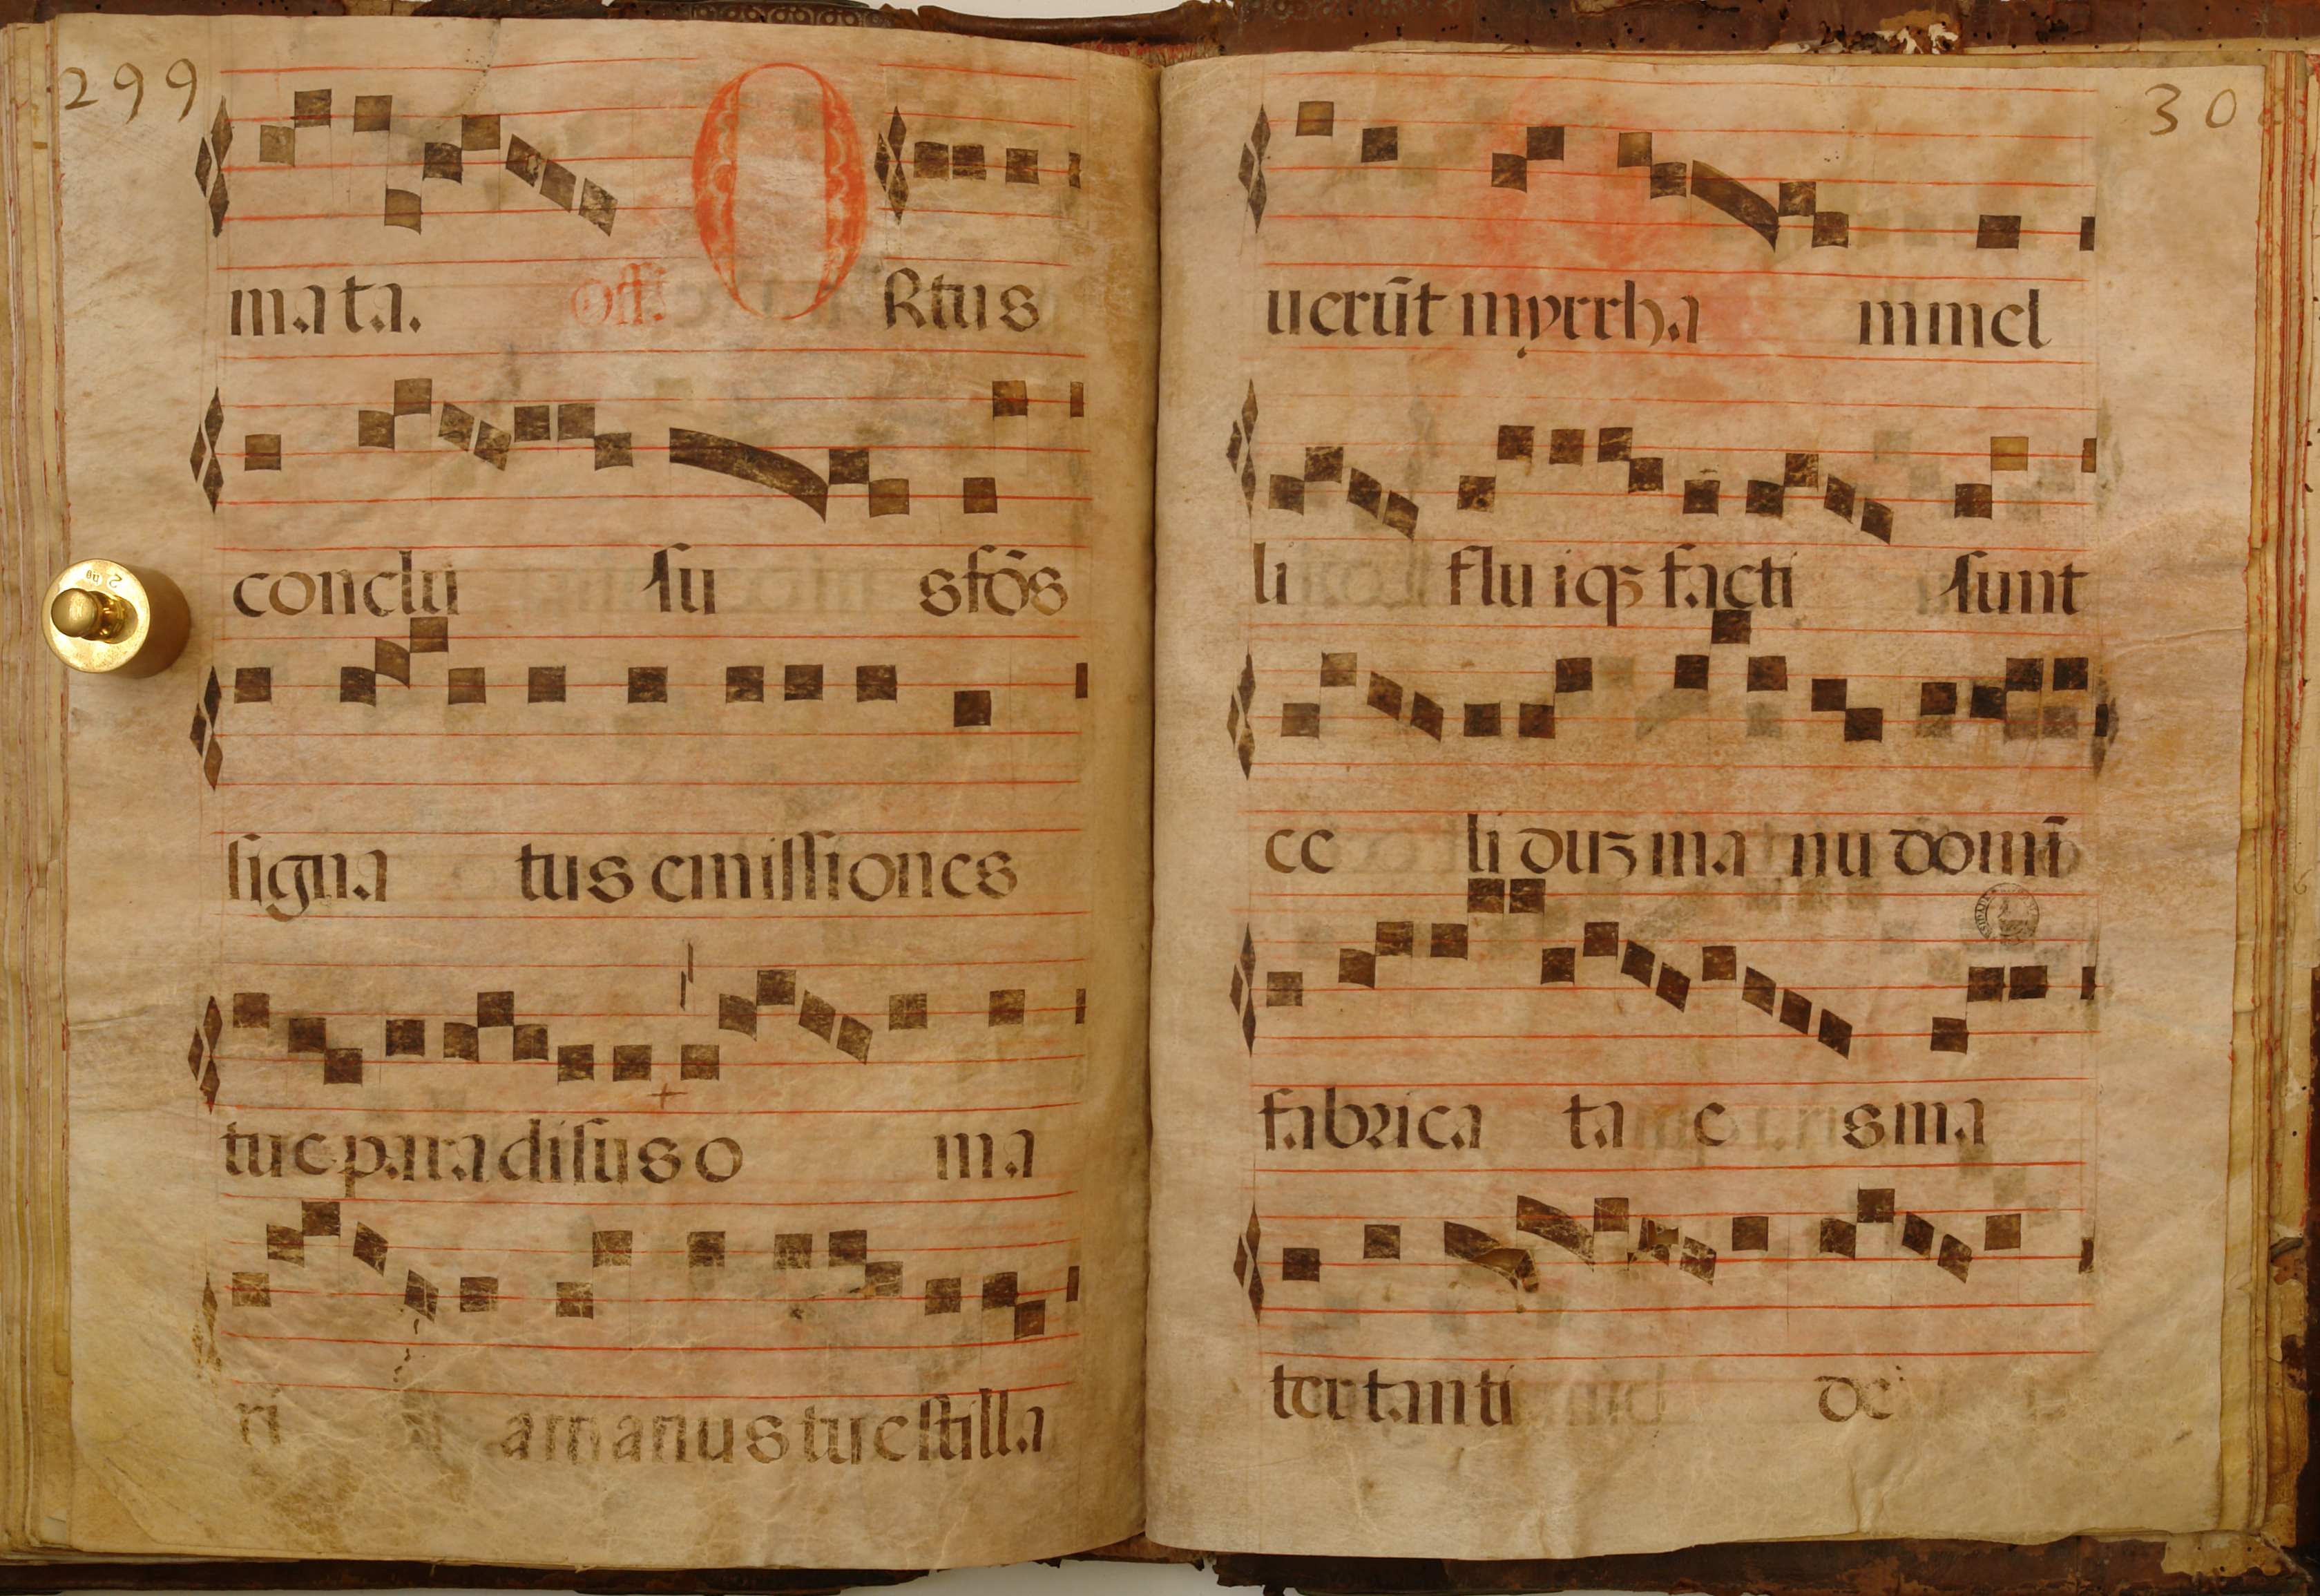 299
mata. Off. ORtus
conclu su sfōs
signa tus emissiones
tue paradisus o ma
ri a manus tue stilla
30
uerūt myrrha mmel
li flu iqʒ facti sunt
ce li duʒ ma nu domī
fabrica ta e s ma
ter tanti dei